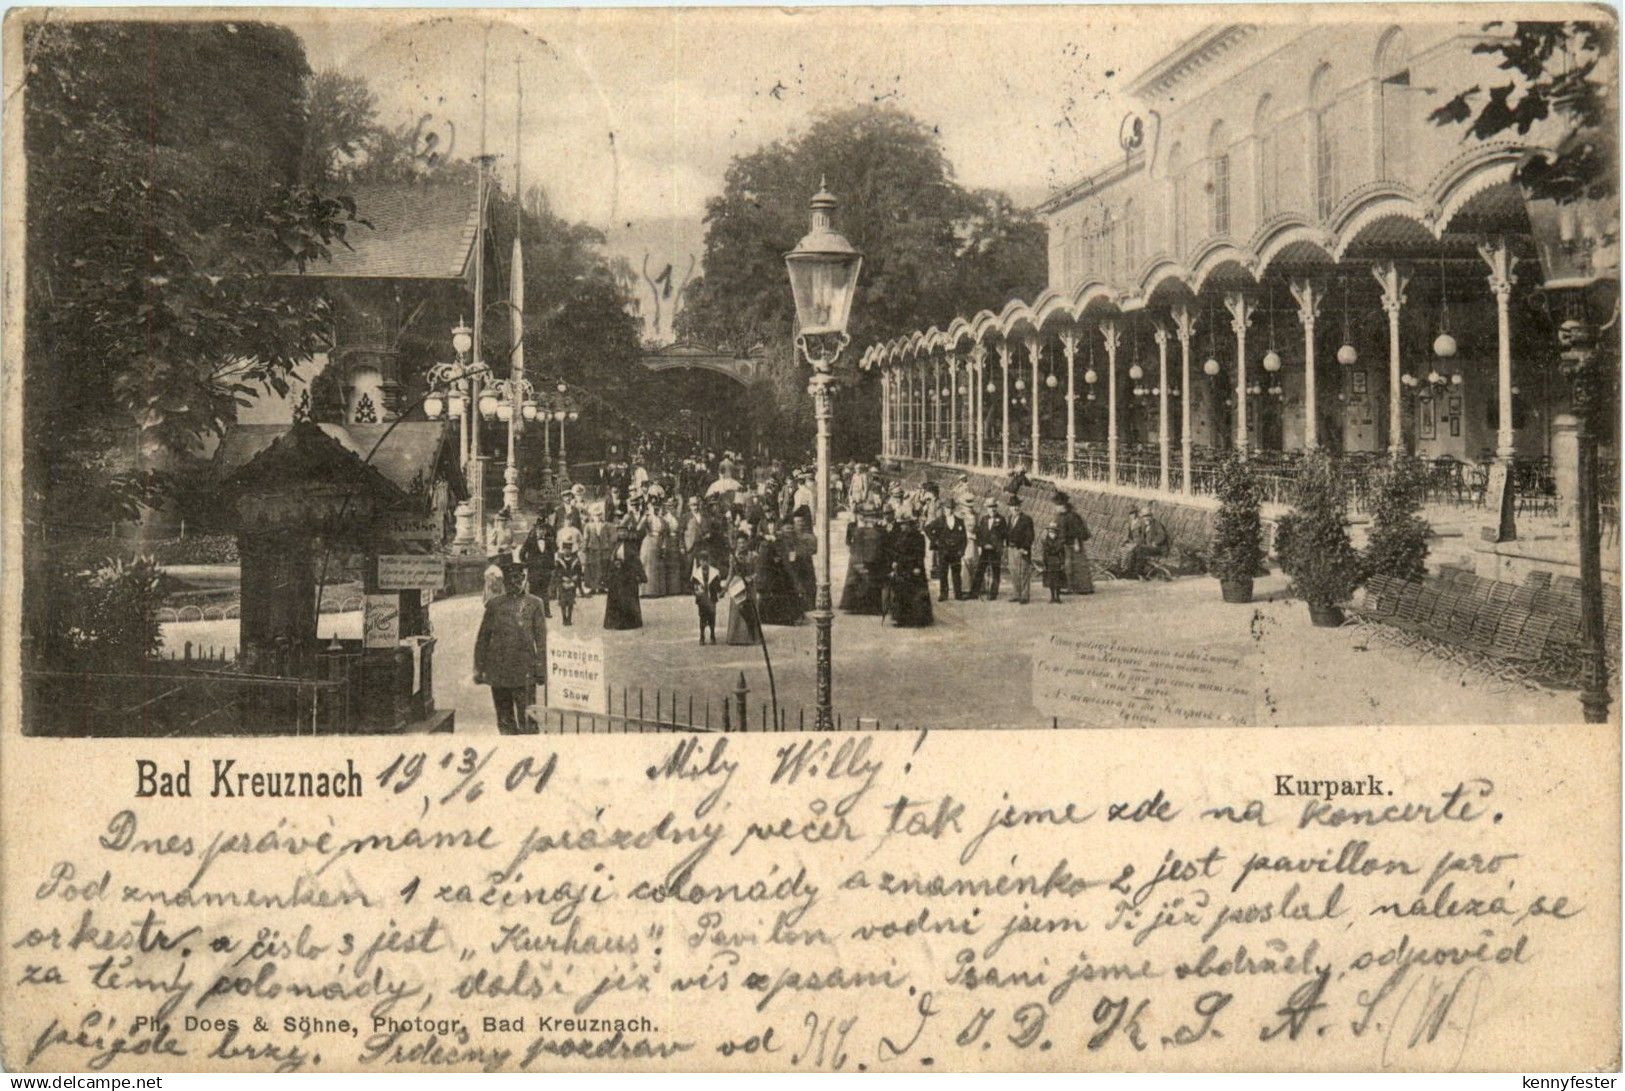 (2)
(3)
1
Kasse.
vorzeigen.
Presenter
Show
Bad Kreuznach 19 13/6 01 Milý Willy!
Kurpark.
Dnes právě máme prázdný večer tak jsme zde na koncertě.
Pod znamenken 1 začínají colonády a znaménko 2 jest pavillon pro
orkestr. a číslo 3 jest „Kurhaus". Pavilon vodní jsem Ti již poslal, nalezá se
za těmy colonády, další již víš z psani. Psani jsme obdržely, odpověd
Ph. Does & Söhne, Photogr. Bad Kreuznach.
přijde brzy. Srdečný pozdrav od M. J. J. D. K. S. A. S. (W)
kennyfester